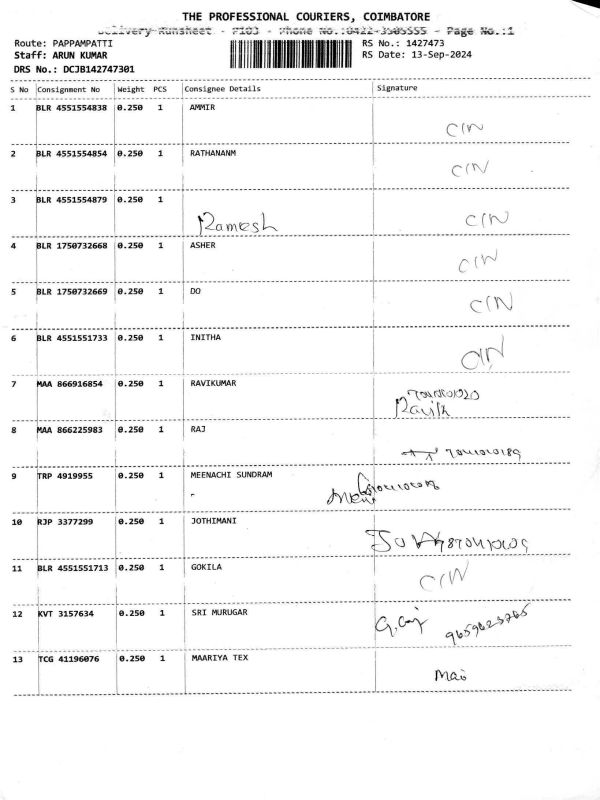 THE PROFESSIONAL COURIERS, COIMBATORE
Delivery Runsheet - P103 - Phone No.:0422-3505555 - Page No.:1
Route: PAPPAMPATTI RS No.: 1427473
Staff: ARUN KUMAR RS Date: 13-Sep-2024
DRS No.: DCJB142747301
S No Consignment No Weight PCS Consignee Details Signature
1 BLR 4551554838 0.250 1 AMMIR
CIN
2 BLR 4551554854 0.250 1 RATHANANM
CIN
3 BLR 4551554879 0.250 1
Ramesh CIN
4 BLR 1750732668 0.250 1 ASHER
CIN
5 BLR 1750732669 0.250 1 DO
CIN
6 BLR 4551551733 0.250 1 INITHA
CIN
7 MAA 866916854 0.250 1 RAVIKUMAR
8 MAA 866225983 0.250 1 RAJ
9 TRP 4919955 0.250 1 MEENACHI SUNDRAM
10 RJP 3377299 0.250 1 JOTHIMANI
11 BLR 4551551713 0.250 1 GOKILA
CIN
12 KVT 3157634 0.250 1 SRI MURUGAR
9659623765
13 TCG 41196076 0.250 1 MAARIYA TEX